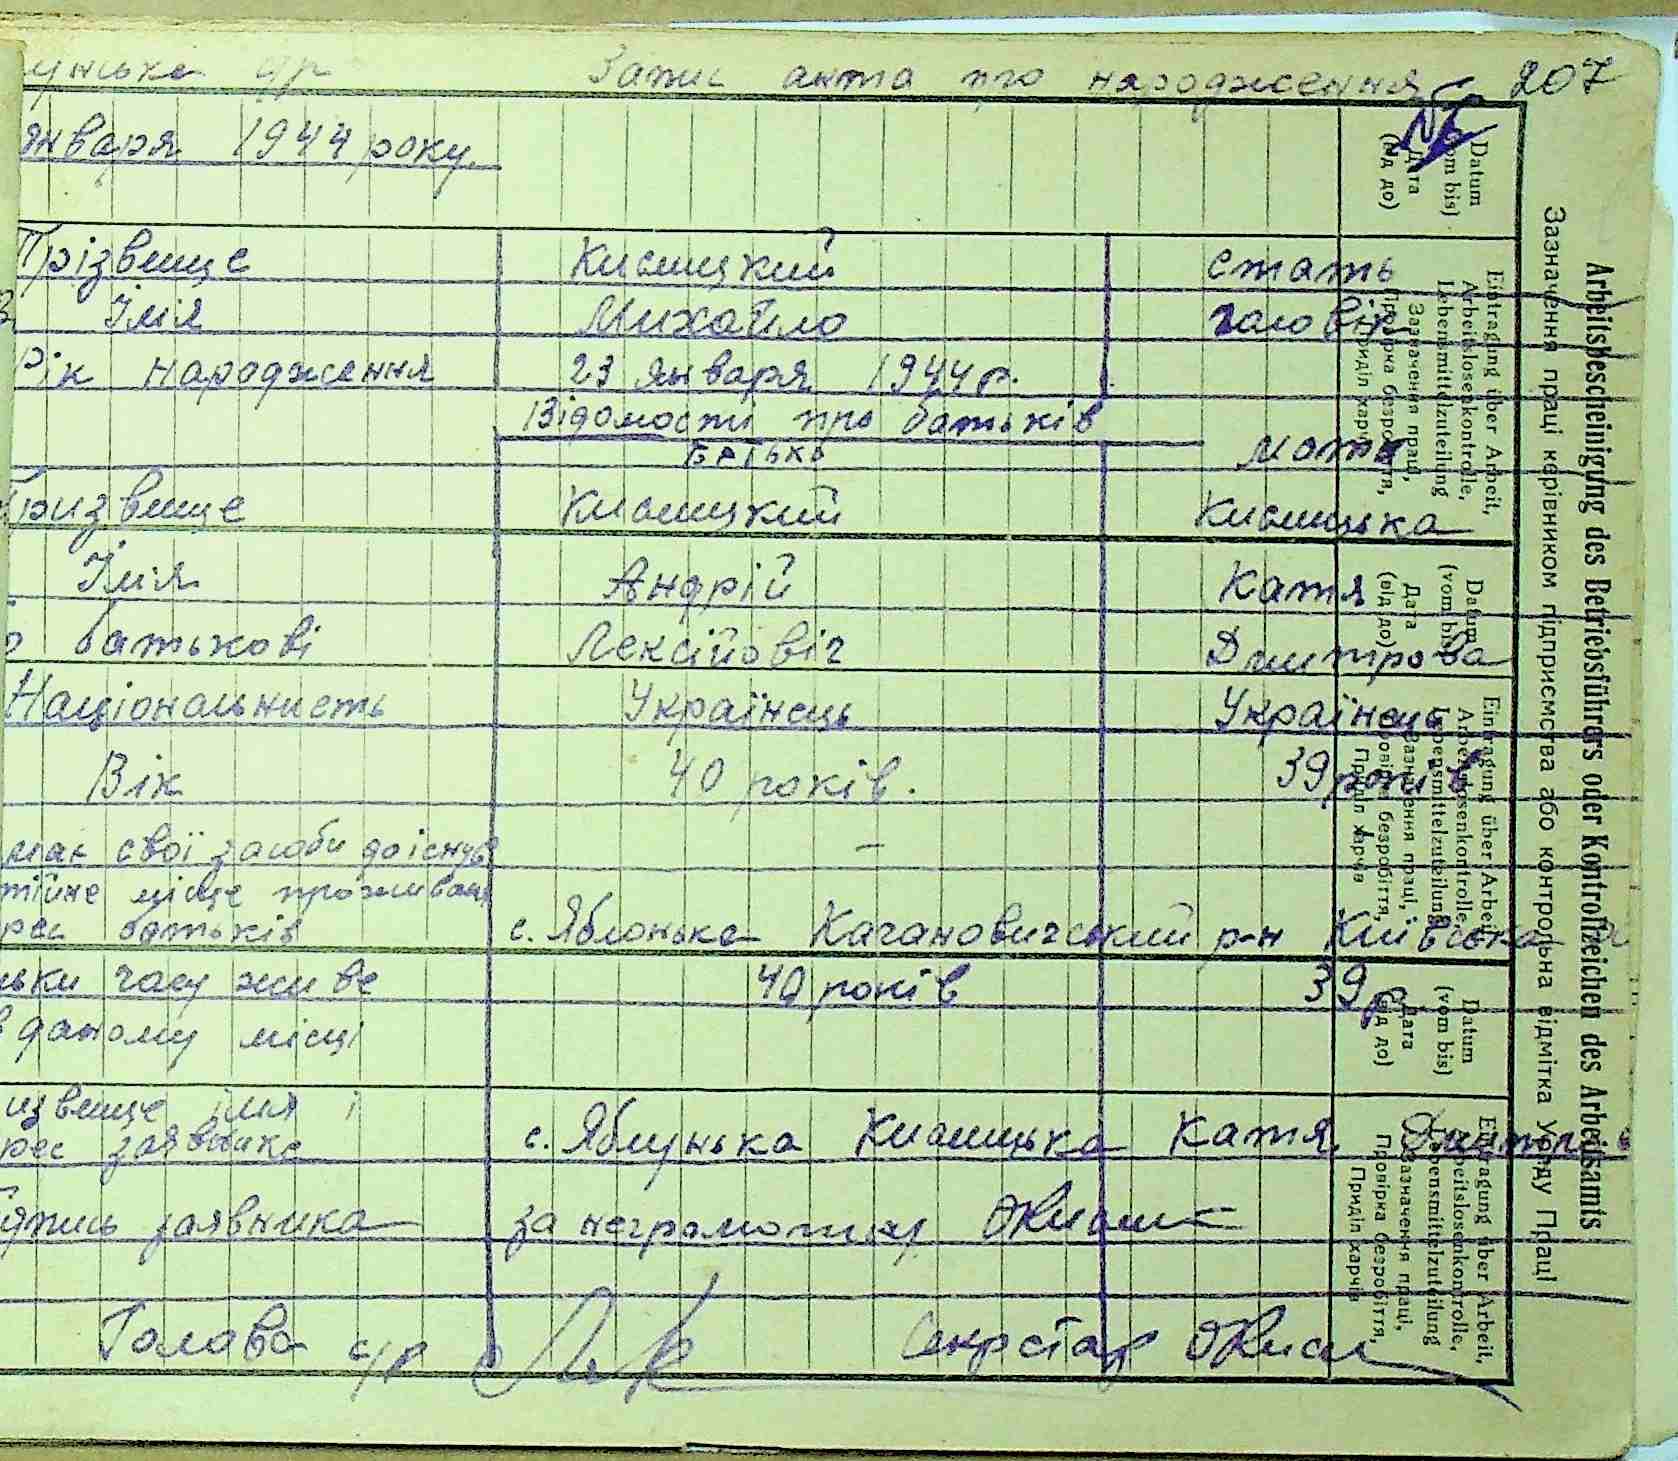 унська с/р Запис акта про народження № 207
января 1944 року
Прізвище Кислицкий стать
Імія Михайло чоловік
Рік народження 23 января 1944 р.
Відомости про батьків
Батько мати
Призвище Кислицкий Кислицька
Імія Андрій Катя
батькові Лексійовіч Дмитрова
Національнисть Українець Українець
Вік 40 років. 39 років
має свої засоби до існув —
тійне місце проживан
рес батьків с. Яблонька Кагановичський р-н Київська
льки часу живе 40 років 39 р
в даному місці
извище імя і
рес заявника с. Яблунька Кислицька Катя Дмитров
Підпись заявника за неграмотну
Голова с/р Секретар
Arbeitsbescheinigung des Betriebsführers oder Kontrollzeichen des Arbeitsamts
Зазначення праці керівником підприємства або контрольна відмітка Уряду Праці
Datum
(vom bis)
Дата
(від до)
Eintragung über Arbeit,
Arbeitslosenkontrolle,
Lebensmittelzuteilung
Зазначення праці,
Провірка безробіття,
Приділ харчів
Datum
(vom bis)
Дата
(від до)
Eintragung über Arbeit,
Arbeitslosenkontrolle,
Lebensmittelzuteilung
Зазначення праці,
Провірка безробіття,
Приділ харчів
Datum
(vom bis)
Дата
(від до)
Eintragung über Arbeit,
Arbeitslosenkontrolle,
Lebensmittelzuteilung
Зазначення праці,
Провірка безробіття,
Приділ харчів